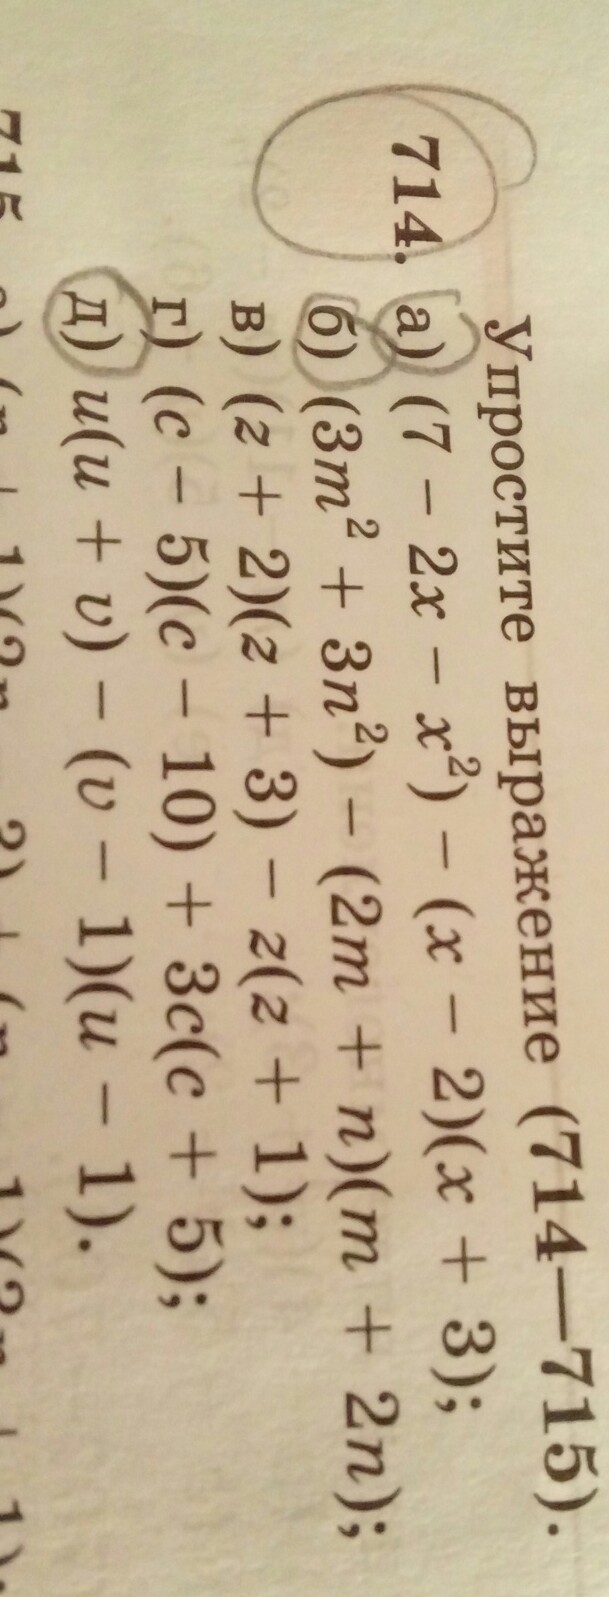 Упростите выражение (714—715).
714. а) (7 − 2x − x²) − (x − 2)(x + 3);
б) (3m² + 3n²) − (2m + n)(m + 2n);
в) (z + 2)(z + 3) − z(z + 1);
г) (c − 5)(c − 10) + 3c(c + 5);
д) u(u + v) − (v − 1)(u − 1).
715